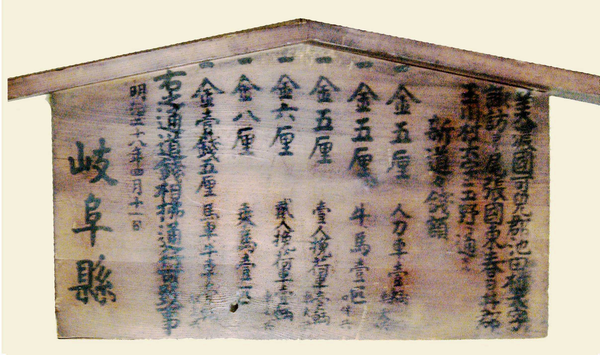 美濃國可兒郡池田村大字
諏訪ヨリ尾張國東春日井郡
玉川村大字玉野ニ通スル
新道々錢額
一金五厘 人力車壹輌
一金五厘 牛馬壹匹 口付共
一金五厘 壹人挽荷車壹輌
一金六厘 貳人挽荷車壹輌
一金八厘 乘馬壹匹
一金壹錢五厘 馬車牛車壹輌
右之通道錢相拂通行可致事
明治二十八年四月十一日
岐阜縣